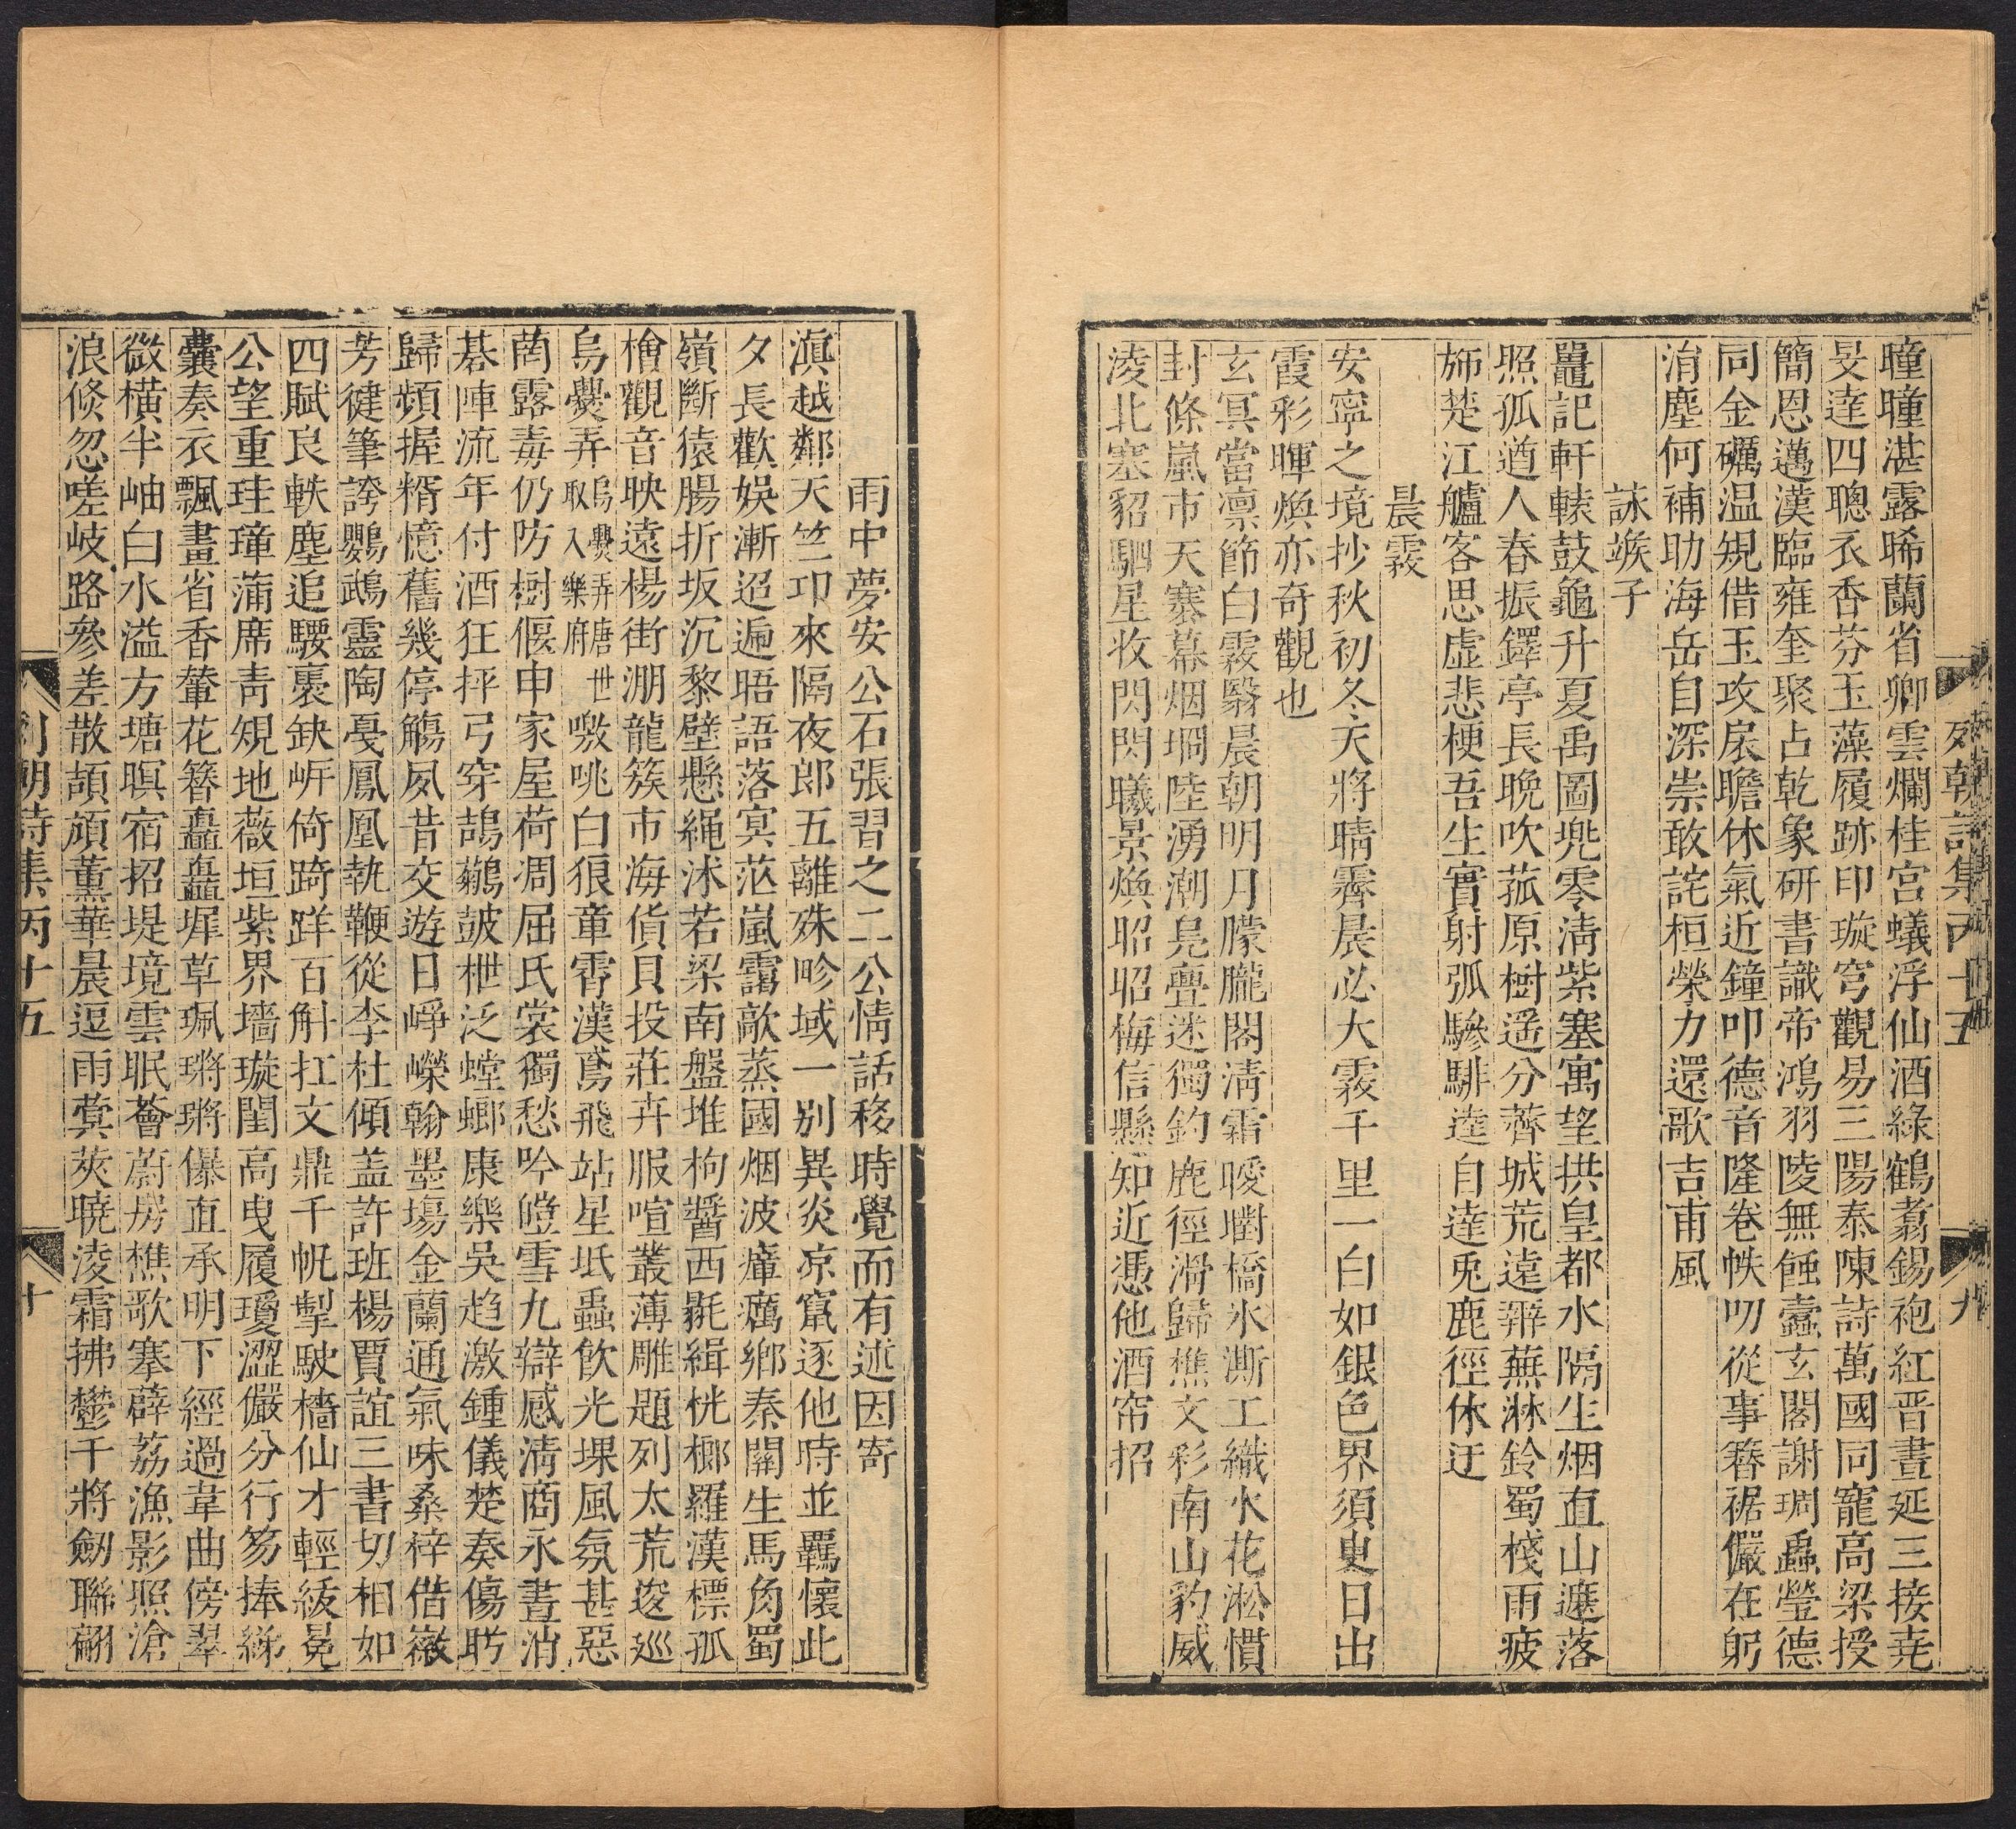 列朝詩集丙十五
九
曈曈湛露晞蘭省卿雲爛桂宮蟻浮仙酒綠鶴翥錫袍紅晋晝延三接堯
旻達四聰衣香芬玉藻履跡印璇穹觀易三陽泰陳詩萬國同寵高梁授
簡恩邁漢臨雍奎聚占乾象研書識帝鴻羽陵無蝕蠹玄閣謝琱蟲瑩德
同金礪温規借玉攻扆瞻休氣近鐘叩德音隆卷帙叨從事簪裾儼在躬
消塵何補助海岳自深崇敢詫桓榮力還歌吉甫風
詠堠子
鼉記軒轅鼓龜升夏禹圖兠零淸紫塞寓望拱皇都水隔生烟直山遮落
照孤遒人春振鐸亭長晚吹菰原樹遥分薺城荒遠辨蕪淋鈴蜀棧雨疲
斾楚江艫客思虛悲梗吾生實射弧驂騑逵自達兎鹿徑休迂
晨霧
安寧之境抄秋初冬天將晴霽晨必大霧千里一白如銀色界須臾日出
霞彩暉煥亦奇觀也
玄冥當凛節白霧翳晨朝明月朦朧閣淸霜曖㬣橋氷澌工織火花淞慣
封條嵐市天寨幕烟坰陸湧潮鳧疊迷獨釣鹿徑滑歸樵文彩南山豹威
淩北塞貂駟星收閃閃曦景煥昭昭梅信懸知近憑他酒帘招
雨中夢安公石張習之二公情話移時覺而有述因寄
滇越鄰天竺卭來隔夜郎五離殊畛域一别異炎凉竄逐他時並羈懷此
夕長歡娛漸迢遞晤語落冥茫嵐靄歊蒸國烟波瘴癘鄉秦關生馬角蜀
嶺斷猿腸折坂沉黎壁懸繩沬若梁南盤堆枸醬西毾緝桄榔羅漢標孤
檜觀音映遠楊街溯龍簇市海貨貝投莊卉服喧叢薄雕題列太荒逡巡
烏㸑弄烏㸑弄唐世取入樂府噭咷白狼章霄漢鳶飛站星坻蟲飲光堁風氛甚惡
菌露毒仍防樹偃申家屋荷凋屈氏裳獨愁吟皚雪九辯感淸商永晝消
棊陣流年付酒狂抨弓穿鵠鷁皷枻泛螳螂康樂吳趋激鍾儀楚奏傷聆
歸頻握糈憶舊幾停觴夙昔交遊日崢嶸翰墨塲金蘭通氣味桑梓借徽
芳健筆誇鸚鵡靈陶戞鳳凰執鞭從李杜傾盖許班楊賈誼三書切相如
四賦良軼塵追騕褭鈌岍倚踦跘百斛扛文鼎千帆掣駛檣仙才輕紱冕
公望重珪璋蒲席青規地薇垣紫界墻璇閨高曳履瓊澀儼分行笏捧綈
囊奏衣飄畫省香輦花簪矗矗墀草珮蹡蹡儤直承明下經過韋曲傍翠
微横半岫白水溢方塘暝宿招堤境雲眠薈蔚房樵歌搴薜荔漁影照滄
浪倐忽嗟岐路叅差散頡頏薰華晨逗雨蓂莢曉淩霜拂鬱干將劒聯翩
列朝詩集丙十五
十